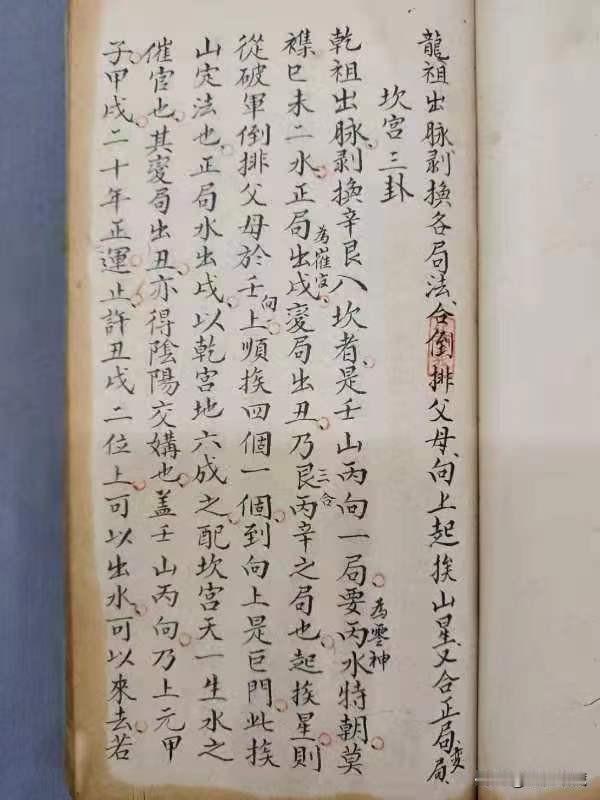 龍祖出脉剥換各局法合倒排父母向上起挨山星又合正局變局
坎宮三卦
乾祖出脉剥換辛艮入坎者是壬山丙向一局要丙水特朝莫
為零神
襍巳未二水正局出戌變局出丑乃艮丙辛之局也起挨星則
為催官
三合
從破軍倒排父母於壬向上順挨四個一個到向上是巨門此挨
山定法也正局水出戌以乾宮地六成之配坎宮天一生水之
催官也其變局出丑亦得陰陽交媾也蓋壬山丙向乃上元甲
子甲戌二十年正運止許丑戌二位上可以出水可以來去若